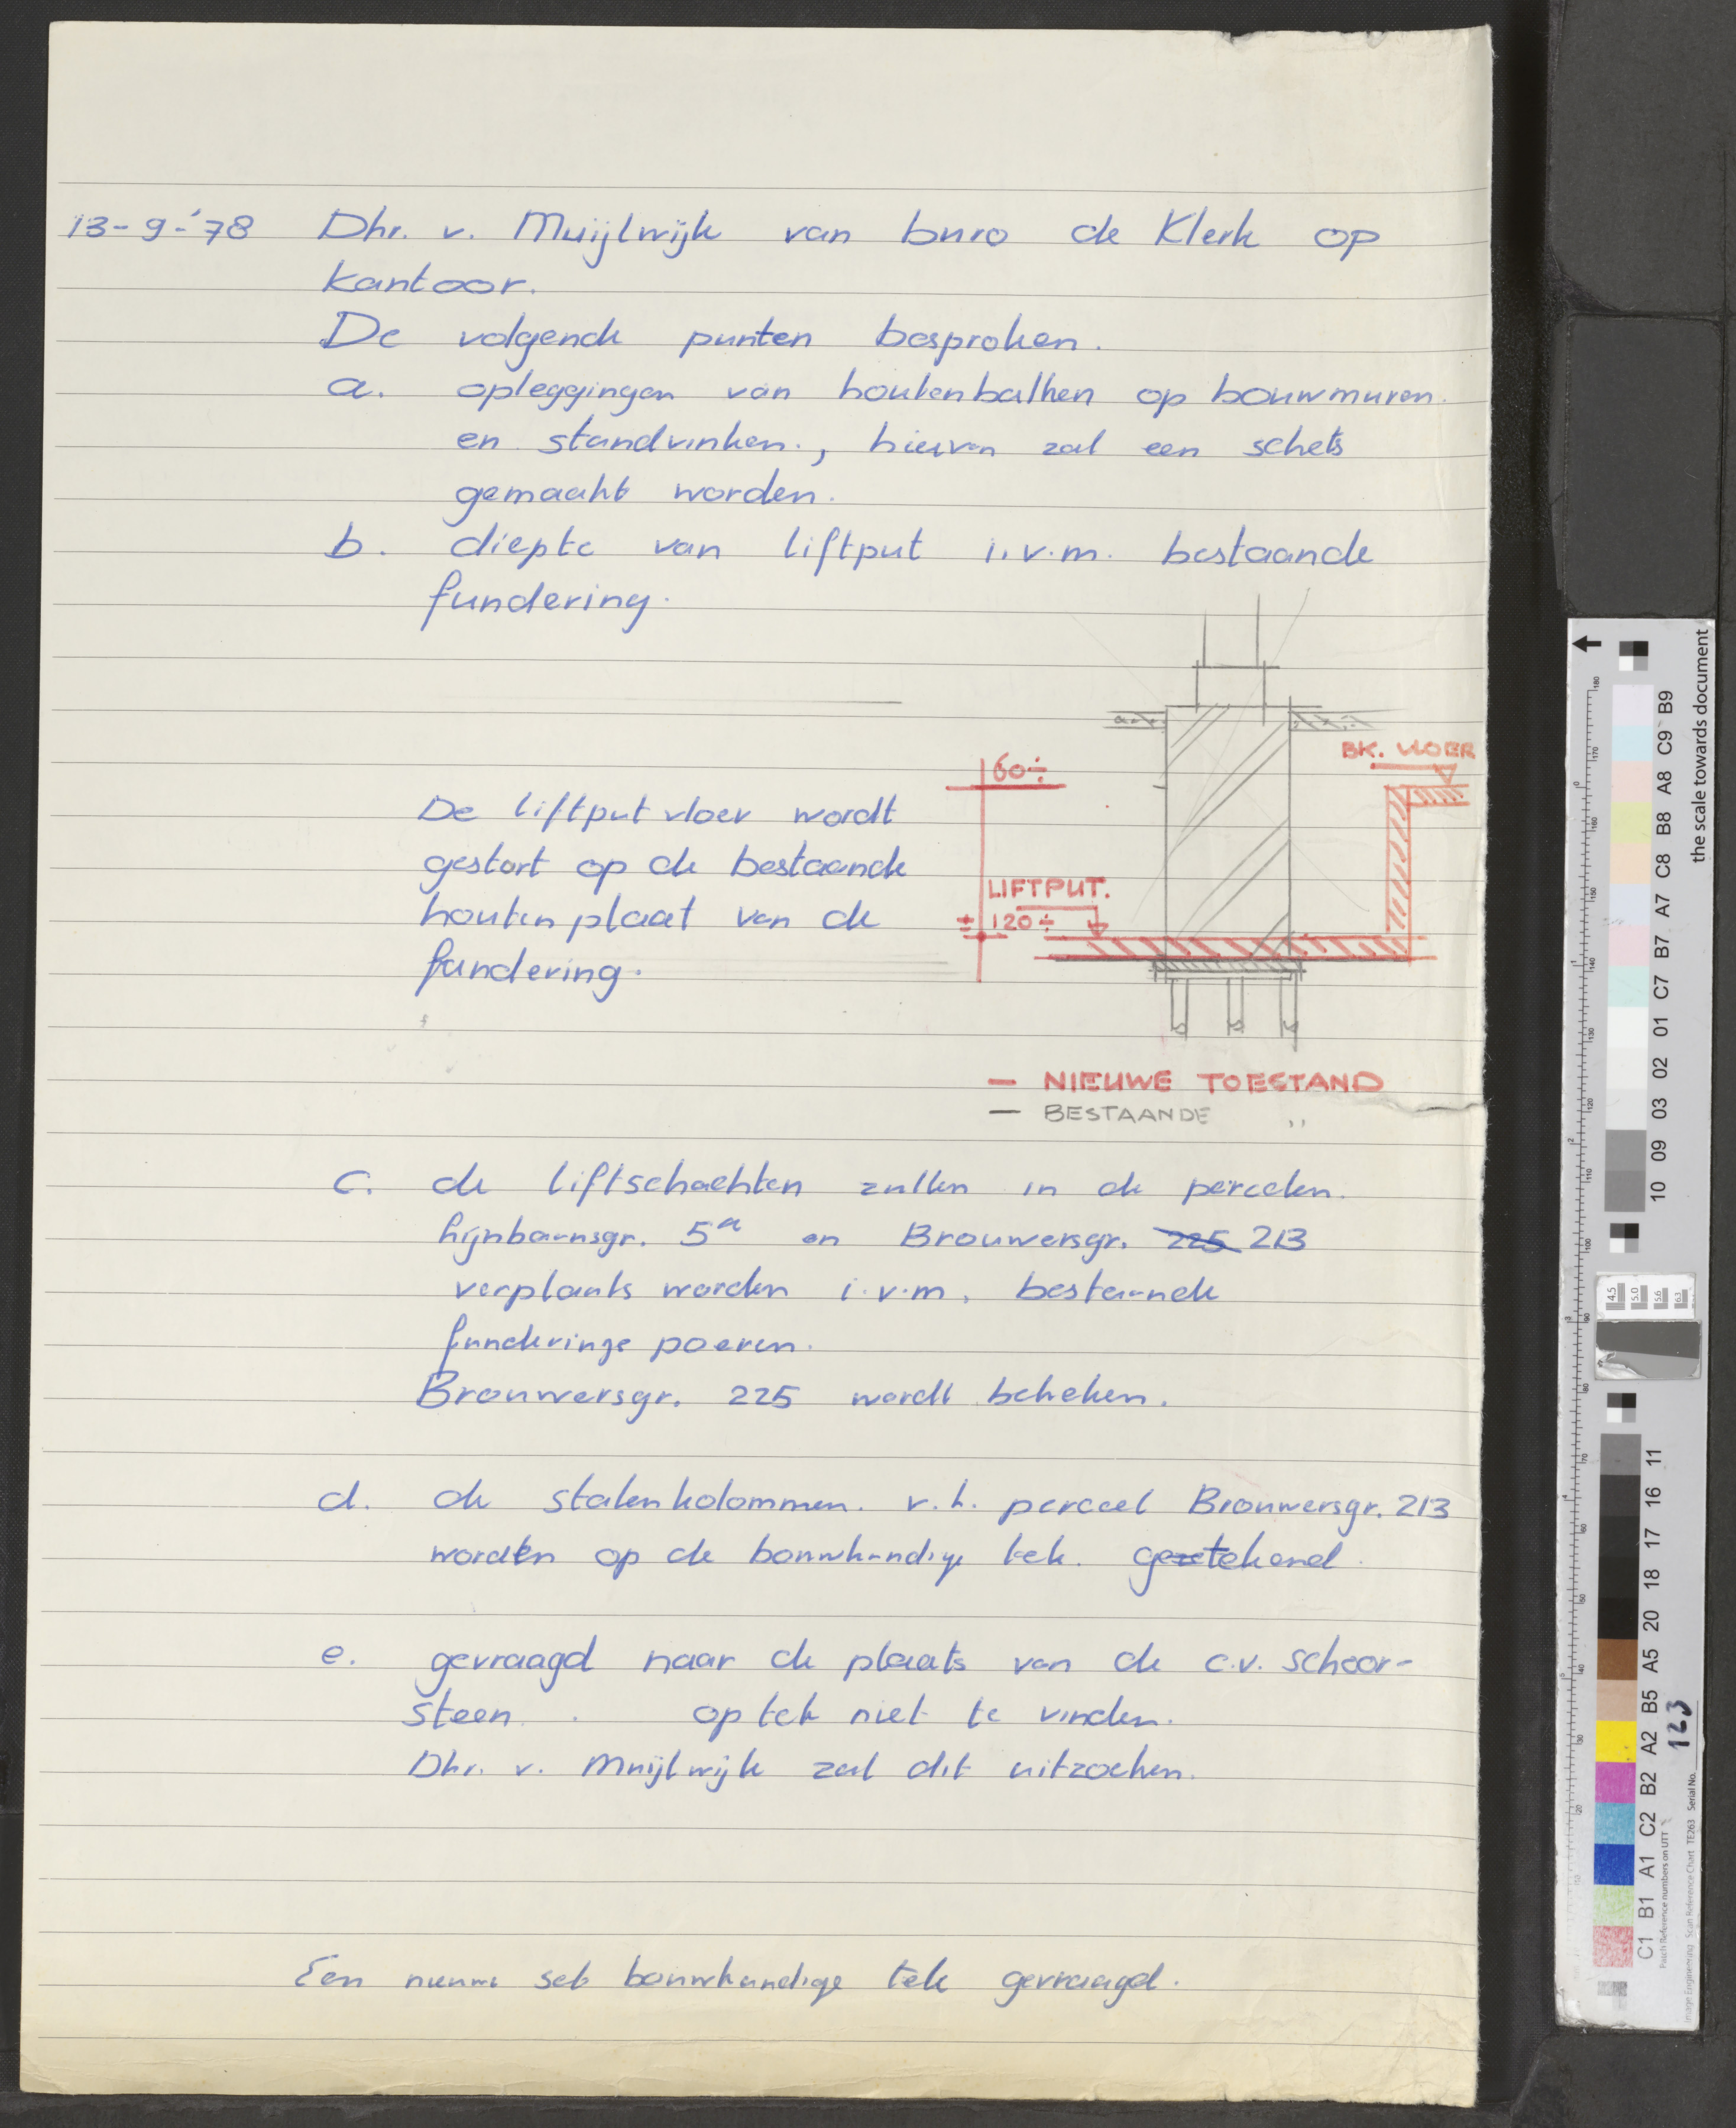 13-9-'78 Dhr. v. Muijlwijk van buro de Klerk op
kantoor.
De volgende punten besproken.
a. opleggingen van houtenbalken op bouwmuren
en standvinken., hiervan zal een schets
gemaakt worden.
b. diepte van liftput i.v.m. bestaande
fundering.
BK. VLOER
60÷
De liftputvloer wordt
gestort op de bestaande
houten plaat van de
fundering.
LIFTPUT.
± 120÷
— NIEUWE TOESTAND
— BESTAANDE ,,
c. de liftschachten zullen in de percelen.
lijnbaansgr. 5a en Brouwersgr. 225 213
verplaats worden i.v.m. bestaande
funderings poeren.
Brouwersgr. 225 wordt bekeken.
d. de stalenkolommen. v.h. perceel Brouwersgr. 213
worden op de bouwkundige tek. getekend.
e. gevraagd naar de plaats van de c.v. schoor-
steen. op tek niet te vinden.
Dhr. v. Muijlwijk zal dit uitzoeken.
Een nieuwe set bouwkundige tek gevraagd.
the scale towards document
B9 C9 A8 B8 C8 A7 B7 C7 01 02 03 09 10
11 16 17 18 20 A5 B5 A2 B2 C2 A1 B1 C1
4.5 5.0 5.6 6.3
Image Engineering Scan Reference Chart TE263 Serial No. 123
Patch Reference numbers on UTT